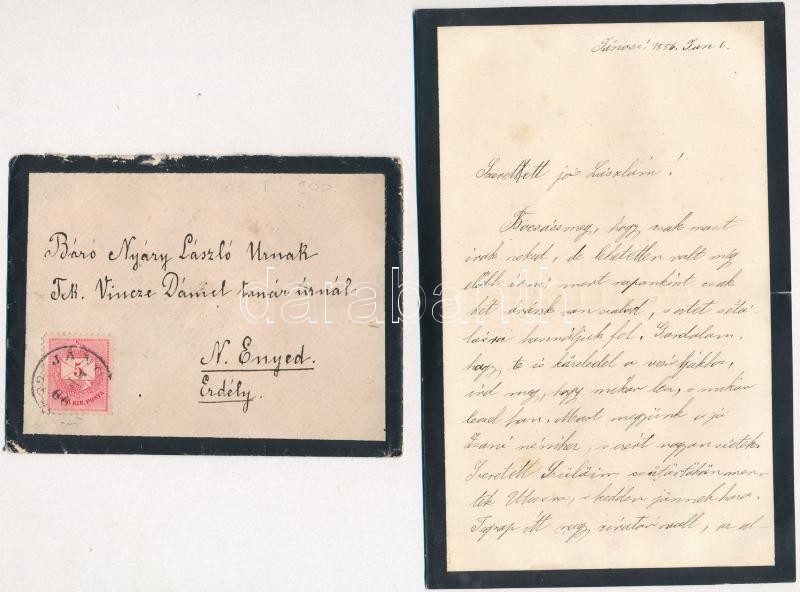 Báró Nyáry László Urnak
Tek. Vincze Dániel tanár úrnál
N. Enyed.
Erdély.
JÁNO
5
KIR. POSTA
Jánosi 1886. Jun 6.
Szeretett jó Lászlóm!
Bocsáss meg, hogy csak most
irok neked, de lehetetlen volt még
előbb irni, mert naponként csak
két óránk van szabad, s ezt sétá-
lásra használjuk fel. Gondolom,
hogy te is készeled a
ird meg, hogy mikor lesz, s mikor
leszel Most megyünk a jó
nénihez, s azért nagyon sietek.
Szeretett Szülőim csütörtökön men-
tek s kedden jönnek haza.
Tegnap itt nagy zivatar volt, az al-
darabanth